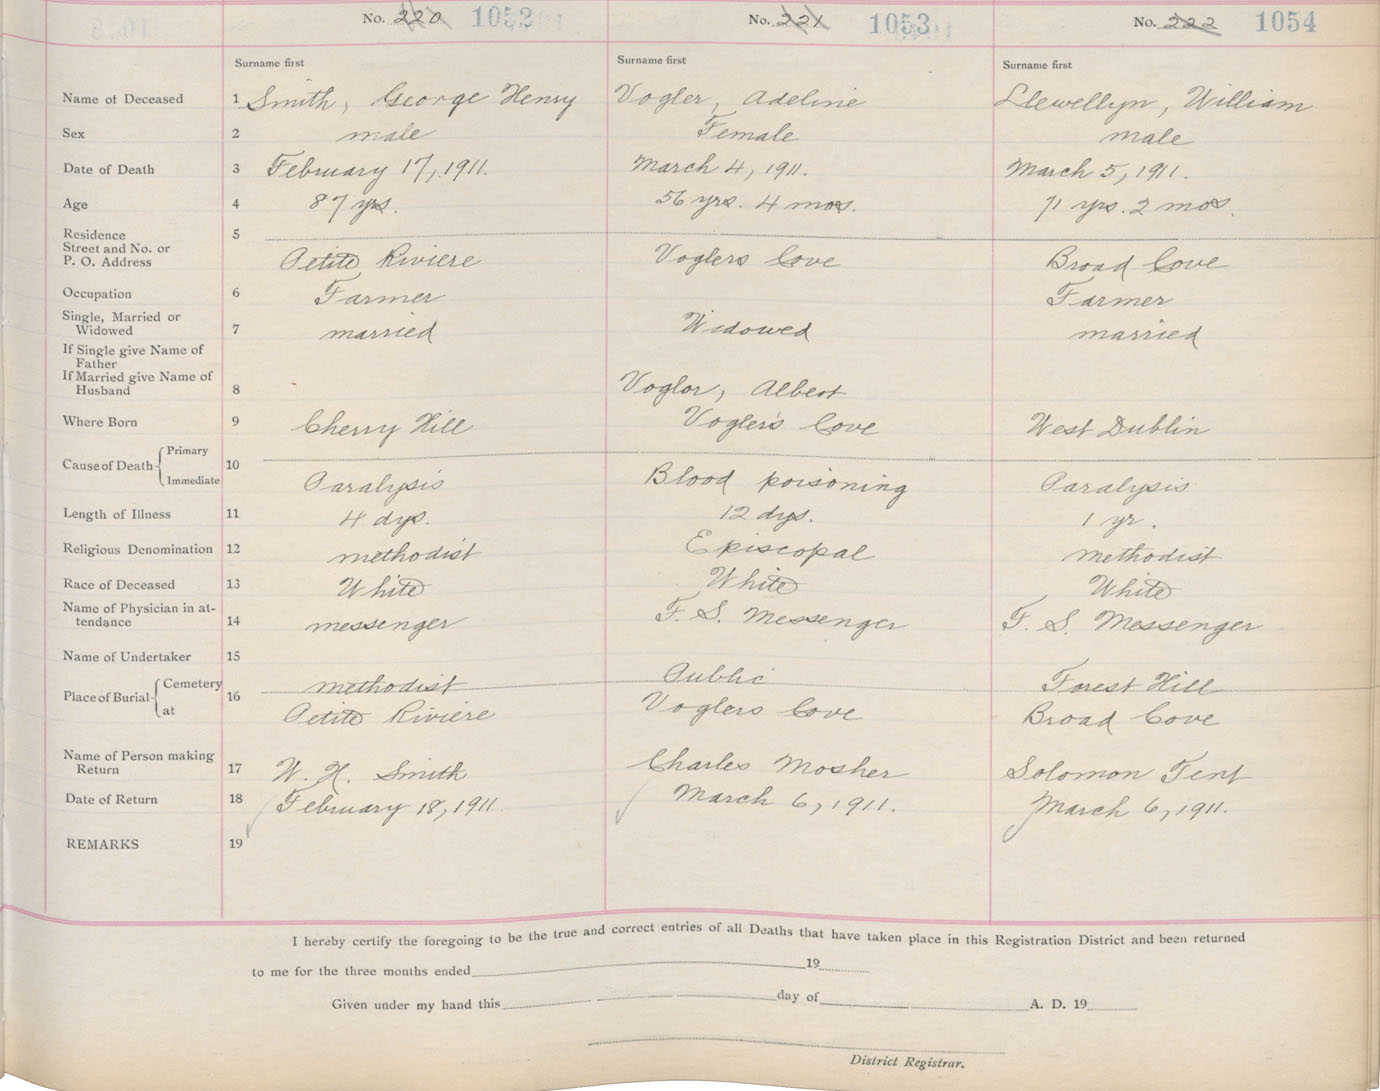 No. 220 1052 No. 221 1053 No. 222 1054
Surname first Surname first Surname first
Name of Deceased 1 Smith, George Henry Vogler, Adeline Llewellyn, William
Sex 2 male Female male
Date of Death 3 February 17, 1911. March 4, 1911. March 5, 1911.
Age 4 87 yrs. 56 yrs. 4 mos. 71 yrs. 2 mos.
Residence 5
Street and No. or
P. O. Address Petite Riviere Voglers Cove Broad Cove
Occupation 6 Farmer Farmer
Single, Married or
Widowed 7 married Widowed married
If Single give Name of
Father
If Married give Name of
Husband 8 Voglor, Albert
Where Born 9 Cherry Hill Vogler's Cove West Dublin
Cause of Death Primary 10
Immediate Paralysis Blood poisoning Paralysis
Length of Illness 11 4 dys. 12 dys. 1 yr.
Religious Denomination 12 methodist Episcopal methodist
Race of Deceased 13 White White White
Name of Physician in at-
tendance 14 messenger F. S. Messenger F. S. Messenger
Name of Undertaker 15
Place of Burial Cemetery 16 methodist Public Forest Hill
at Petite Riviere Voglers Cove Broad Cove
Name of Person making
Return 17 W. H. Smith Charles Mosher Solomon Tent
Date of Return 18 February 18, 1911 March 6, 1911. March 6, 1911.
REMARKS 19
I hereby certify the foregoing to be the true and correct entries of all Deaths that have taken place in this Registration District and been returned
to me for the three months ended 19
Given under my hand this day of A. D. 19
District Registrar.